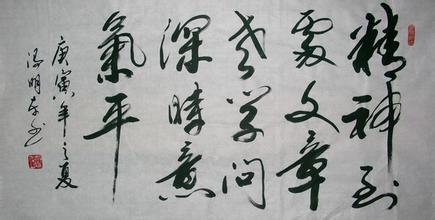 精神到
處文章
老学問
深時意
氣平
庚寅年之夏
明书